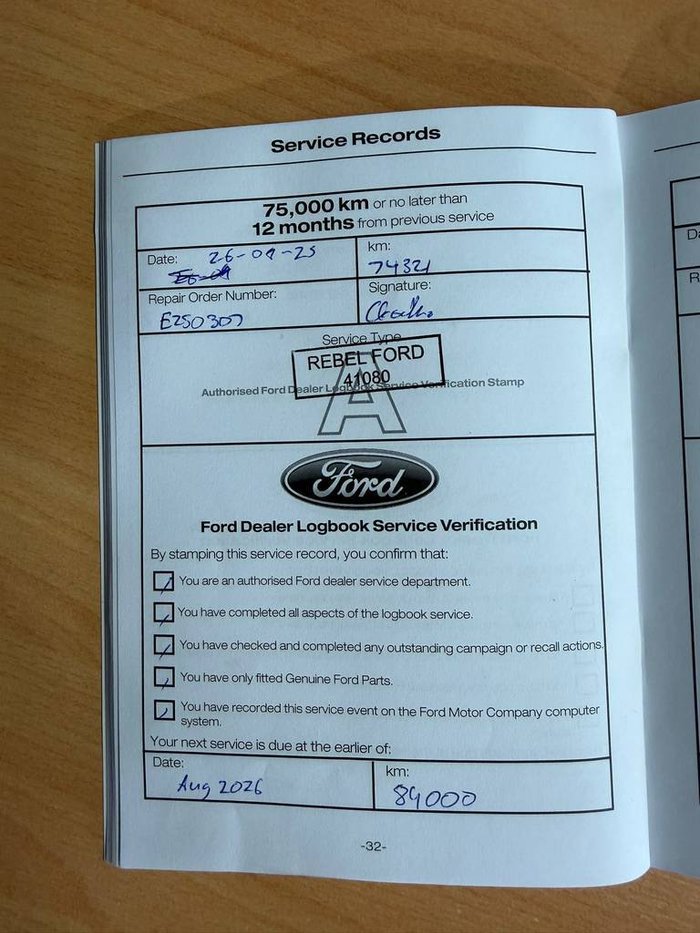 Service Records
75,000 km or no later than
12 months from previous service
Date: 26-09-25
km:
74321
Repair Order Number:
E250307
Signature:
Service Type
REBEL FORD
41080
A
Authorised Ford Dealer Logbook Service Verification Stamp
Ford
Ford Dealer Logbook Service Verification
By stamping this service record, you confirm that:
You are an authorised Ford dealer service department.
You have completed all aspects of the logbook service.
You have checked and completed any outstanding campaign or recall actions.
You have only fitted Genuine Ford Parts.
You have recorded this service event on the Ford Motor Company computer
system.
Your next service is due at the earlier of:
Date:
Aug 2026
km:
89000
-32-